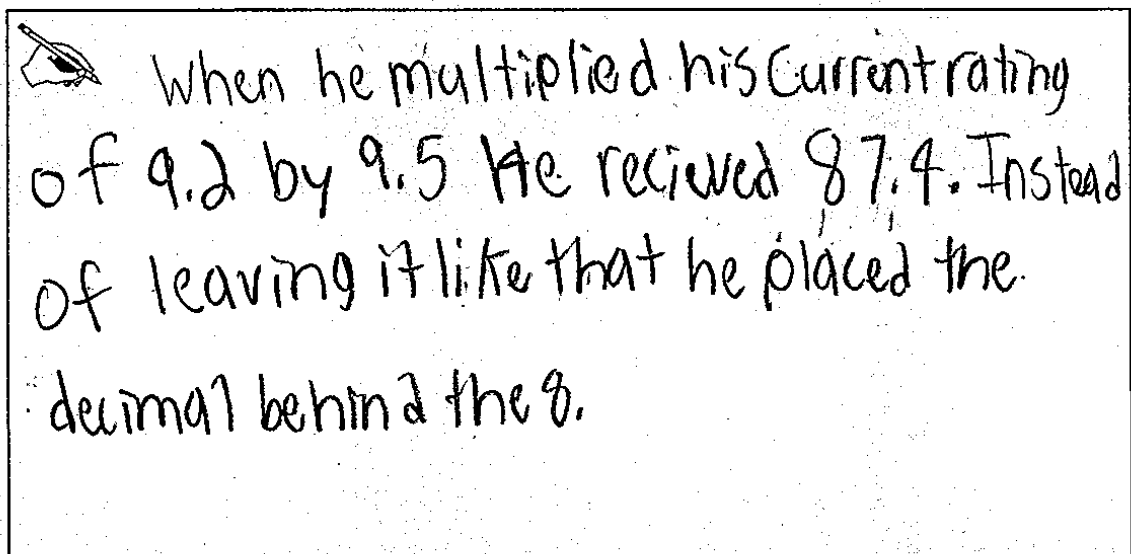 When he multiplied his current rating
of 9.2 by 9.5 He recieved 87.4. Instead
of leaving it like that he placed the
decimal behind the 8.